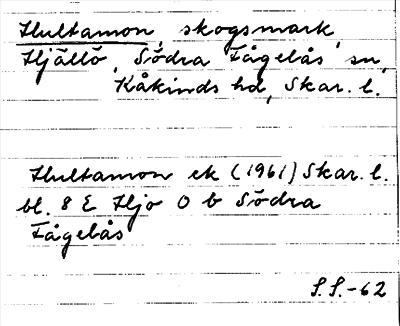 Hultamon, skogsmark,
Hjällö, Södra Fågelås sn,
Kåkinds hd, Skar. l.
Hultamon ek (1961) Skar. l.
bl. 8 E Hjo O b Södra
Fågelås
S.S.-62